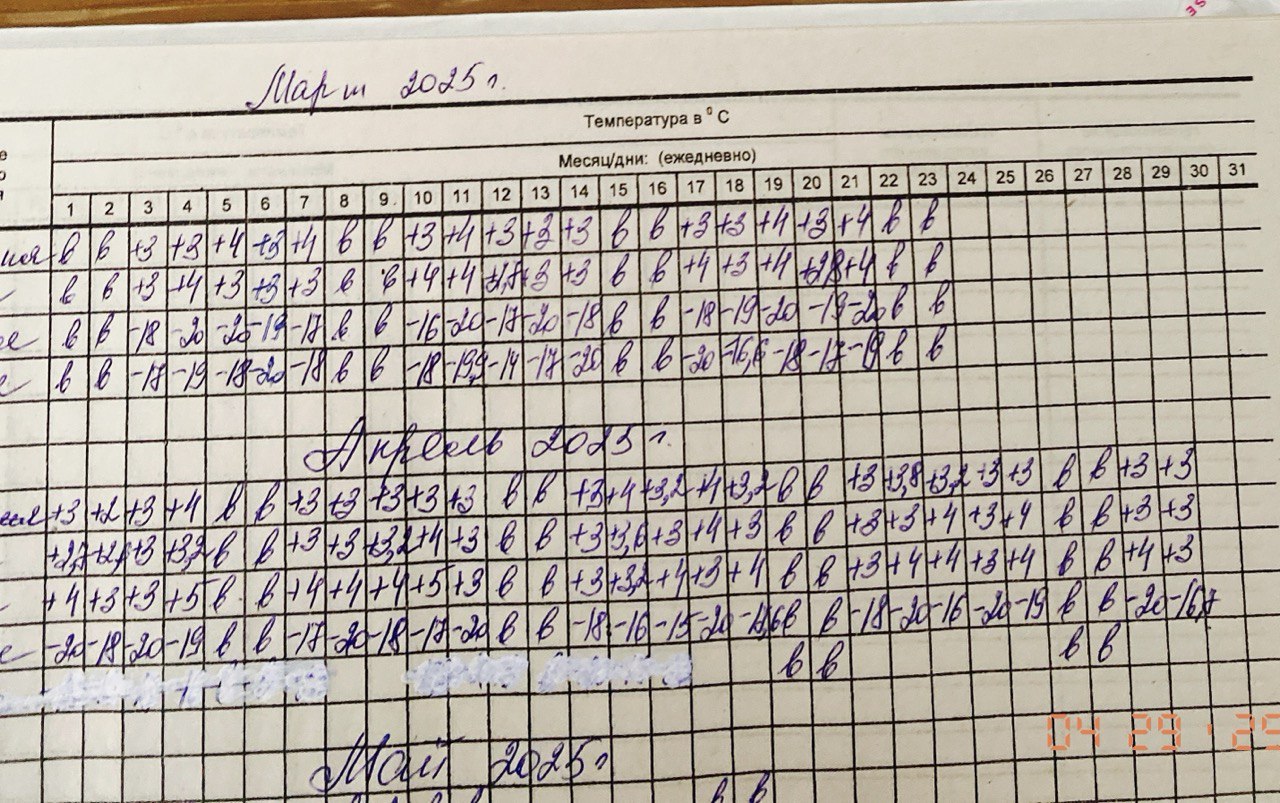 Март 2025 г.
Температура в ⁰ С
Месяц/дни: (ежедневно)
1 2 3 4 5 6 7 8 9. 10 11 12 13 14 15 16 17 18 19 20 21 22 23 24 25 26 27 28 29 30 31
в в +3 +3 +4 +3 +4 в в +3 +4 +3 +3 +3 в в +3 +3 +4 +3 +4 в в
в в +3 +4 +3 +3 +3 в в +4 +4 +3 +3 в в +4 +3 +4 +2,8 +4 в в
в в -18 -20 -20 -19 -17 в в -16 -20 -17 -20 -18 в в -18 -19 -20 -19 -20 в в
в в -17 -19 -18 -20 -18 в в -18 -19,9 -17 -20 в в -20 -16,6 -18 -17 -19 в в
Апрель 2025 г.
+3 +2 +3 +4 в в +3 +3 +3 +3 +3 в в +3 +4 +3,2 +4 +3,2 в в +3 +3,8 +3,2 +3 +3 в в +3 +3
+3 +3,2 в в +3 +3 +3,2 +4 +3 в в +3 +3,6 +3 +4 +3 в в +3 +3 +4 +3 +4 в в +3 +3
+4 +3 +3 +5 в в +4 +4 +4 +5 +3 в в +3 +3,2 +4 +3 +4 в в +3 +4 +4 +3 +4 в в +4 +3
-20 -18 -20 -19 в в -17 -20 -18 -17 -20 в в -18 -16 -15 -20 в в -18 -20 -16 -20 -19 в в -20 -16,7
в в в в
04 29 '25
Май 2025 г
в в